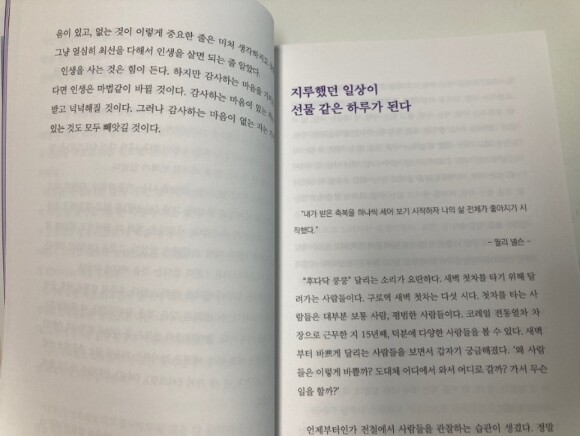 음이 있고, 없는 것이 이렇게 중요한 줄은 미처 생각하지
그냥 열심히 최선을 다해서 인생을 살면 되는 줄 알았다.
인생을 사는 것은 힘이 든다. 하지만 감사하는 마음을
다면 인생은 마법같이 바뀔 것이다. 감사하는 마음이 있는
받고 넉넉해질 것이다. 그러나 감사하는 마음이 없는 자는
있는 것도 모두 빼앗길 것이다.
지루했던 일상이
선물 같은 하루가 된다
"내가 받은 축복을 하나씩 세어 보기 시작하자 나의 삶 전체가 좋아지기 시
작했다."
- 윌리 넬슨 -
"후다닥 쿵쿵" 달리는 소리가 요란하다. 새벽 첫차를 타기 위해 달
려가는 사람들이다. 구로역 새벽 첫차는 다섯 시다. 첫차를 타는 사
람들은 대부분 보통 사람, 평범한 사람들이다. 코레일 전동열차 차
장으로 근무한 지 15년째, 덕분에 다양한 사람들을 볼 수 있다. 새벽
부터 바쁘게 달리는 사람들을 보면서 갑자기 궁금해졌다. '왜 사람
들은 이렇게 바쁠까? 도대체 어디에서 와서 어디로 갈까? 가서 무슨
일을 할까?'
언제부터인가 전철에서 사람들을 관찰하는 습관이 생겼다. 정말